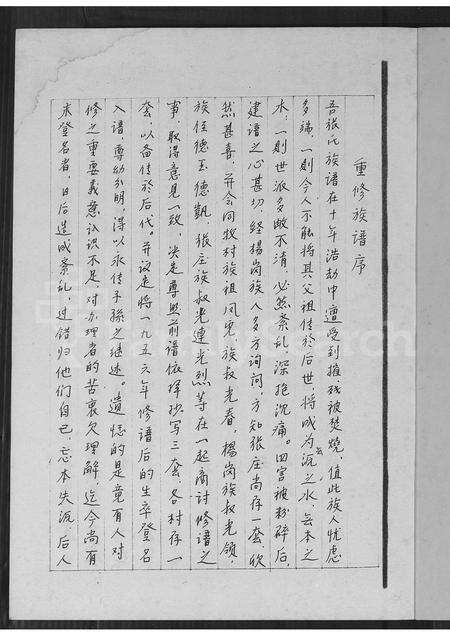 重修族谱序
吾张氏族谱在十年浩劫中遭受到摧残被焚烧，值此族人忧虑
多端，一则今人不能将其父祖传於后世，将成为无沉之水，无本之
木，一则世派多微不清，必然紊乱，深抱沉痛。四害被粉碎后，
建谱之心甚切，经杨岗族人多方询问，方知张庄尚存一套欣
然甚喜，并会同牧村族祖凤 族叔光春，杨岗族叔光领，
族侄德玉德凯，张庄族叔光连光烈等在一起商讨修谱之
事，取得意见一致，决定尊照前谱依样抄写三套，各村存一
套，以备传於后代。并议定将一九五六年修谱后的生卒登名
入谱，尊幼分明，得以永传子孫之继述。遗憾的是竟有人对
修之重要義意认识不足，对办理者的苦衷欠理解，迄今尚有
未登名者，日后造成紊乱，过错归他们自己，忘本失沉，后人